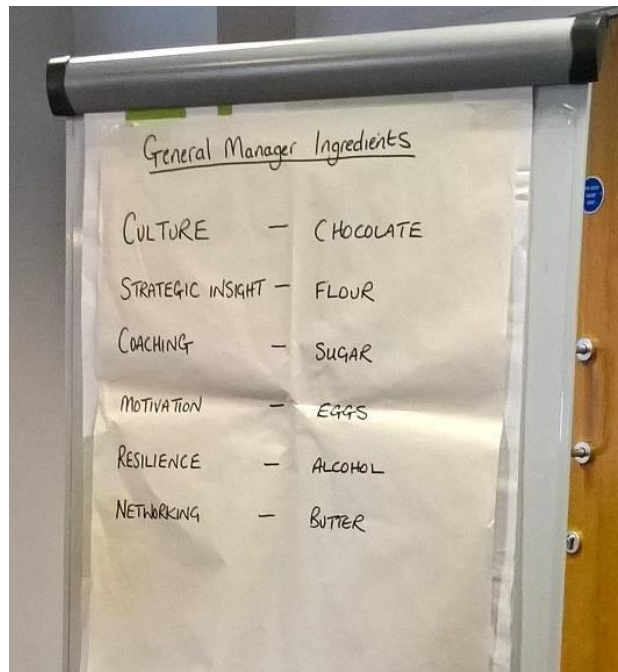 General Manager Ingredients
CULTURE – CHOCOLATE
STRATEGIC INSIGHT – FLOUR
COACHING – SUGAR
MOTIVATION – EGGS
RESILIENCE – ALCOHOL
NETWORKING – BUTTER